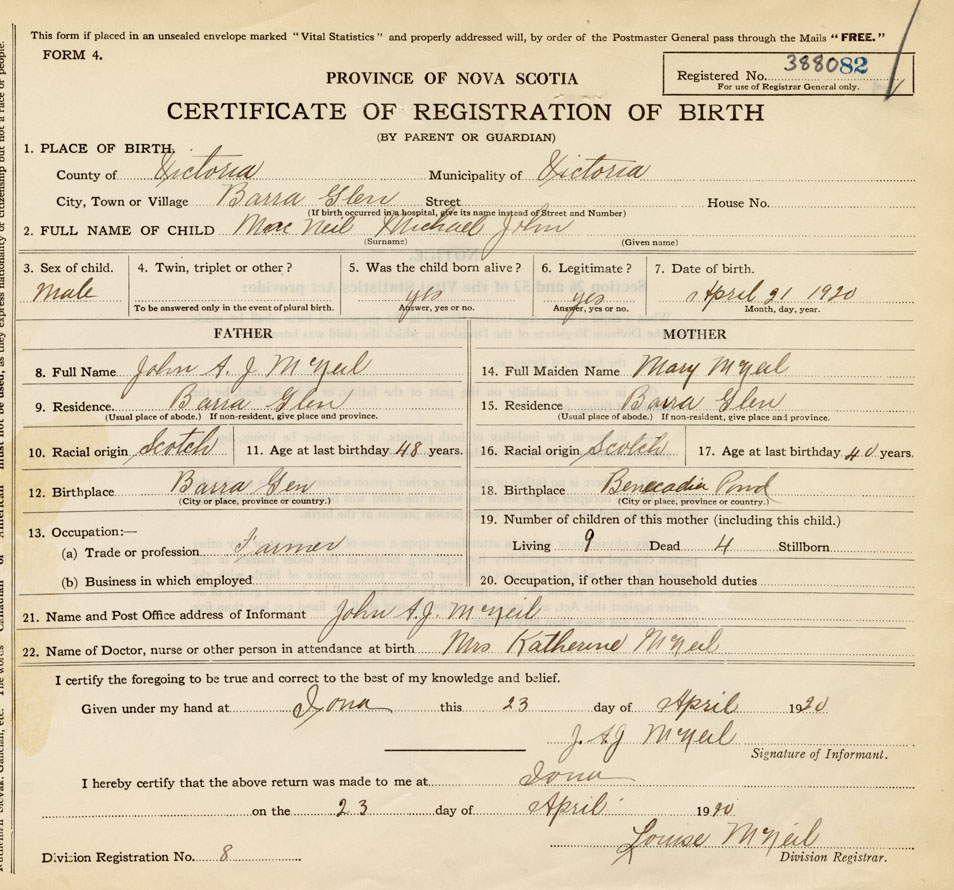 This form if placed in an unsealed envelope marked "Vital Statistics" and properly addressed will, by order of the Postmaster General pass through the Mails "FREE."
FORM 4.
Registered No. 388082
For use of Registrar General only.
PROVINCE OF NOVA SCOTIA
CERTIFICATE OF REGISTRATION OF BIRTH
(BY PARENT OR GUARDIAN)
1. PLACE OF BIRTH.
County of Victoria Municipality of Victoria
City, Town or Village Barra Glen Street House No.
(If birth occurred in a hospital, give its name instead of Street and Number)
2. FULL NAME OF CHILD Mac Neil Michael John
(Surname) (Given name)
3. Sex of child. 4. Twin, triplet or other? 5. Was the child born alive? 6. Legitimate? 7. Date of birth.
Male yes yes April 21 1920
To be answered only in the event of plural birth. Answer, yes or no. Answer, yes or no. Month, day, year.
FATHER
8. Full Name John A. J McNeil
9. Residence. Barra Glen
(Usual place of abode.) If non-resident, give place and province.
10. Racial origin Scotch 11. Age at last birthday 48 years.
12. Birthplace Barra Glen
(City or place, province or country.)
13. Occupation:—
(a) Trade or profession Farmer
(b) Business in which employed
MOTHER
14. Full Maiden Name Mary McNeil
15. Residence Barra Glen
(Usual place of abode.) If non-resident, give place and province.
16. Racial origin Scotch 17. Age at last birthday 40 years.
18. Birthplace Benacadia Pond
(City or place, province or country.)
19. Number of children of this mother (including this child.)
Living 9 Dead 4 Stillborn
20. Occupation, if other than household duties
21. Name and Post Office address of Informant John A.J. McNeil
22. Name of Doctor, nurse or other person in attendance at birth Mrs Katherine McNeil
I certify the foregoing to be true and correct to the best of my knowledge and belief.
Given under my hand at Iona this 23 day of April 1920
J. AJ McNeil
Signature of Informant.
I hereby certify that the above return was made to me at Iona
on the 23 day of April 1920
Louise McNeil
Division Registration No. 8 Division Registrar.